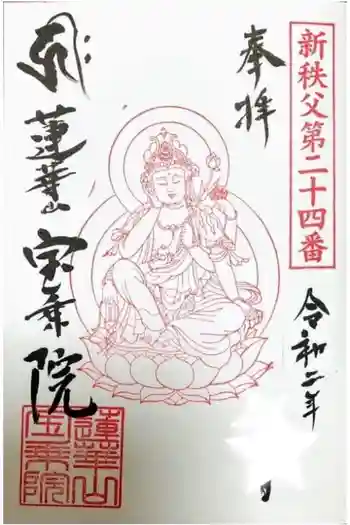 新秩父第二十四番
奉拝
令和二年
蓮華山
宝乗院
蓮華山
玉乗院